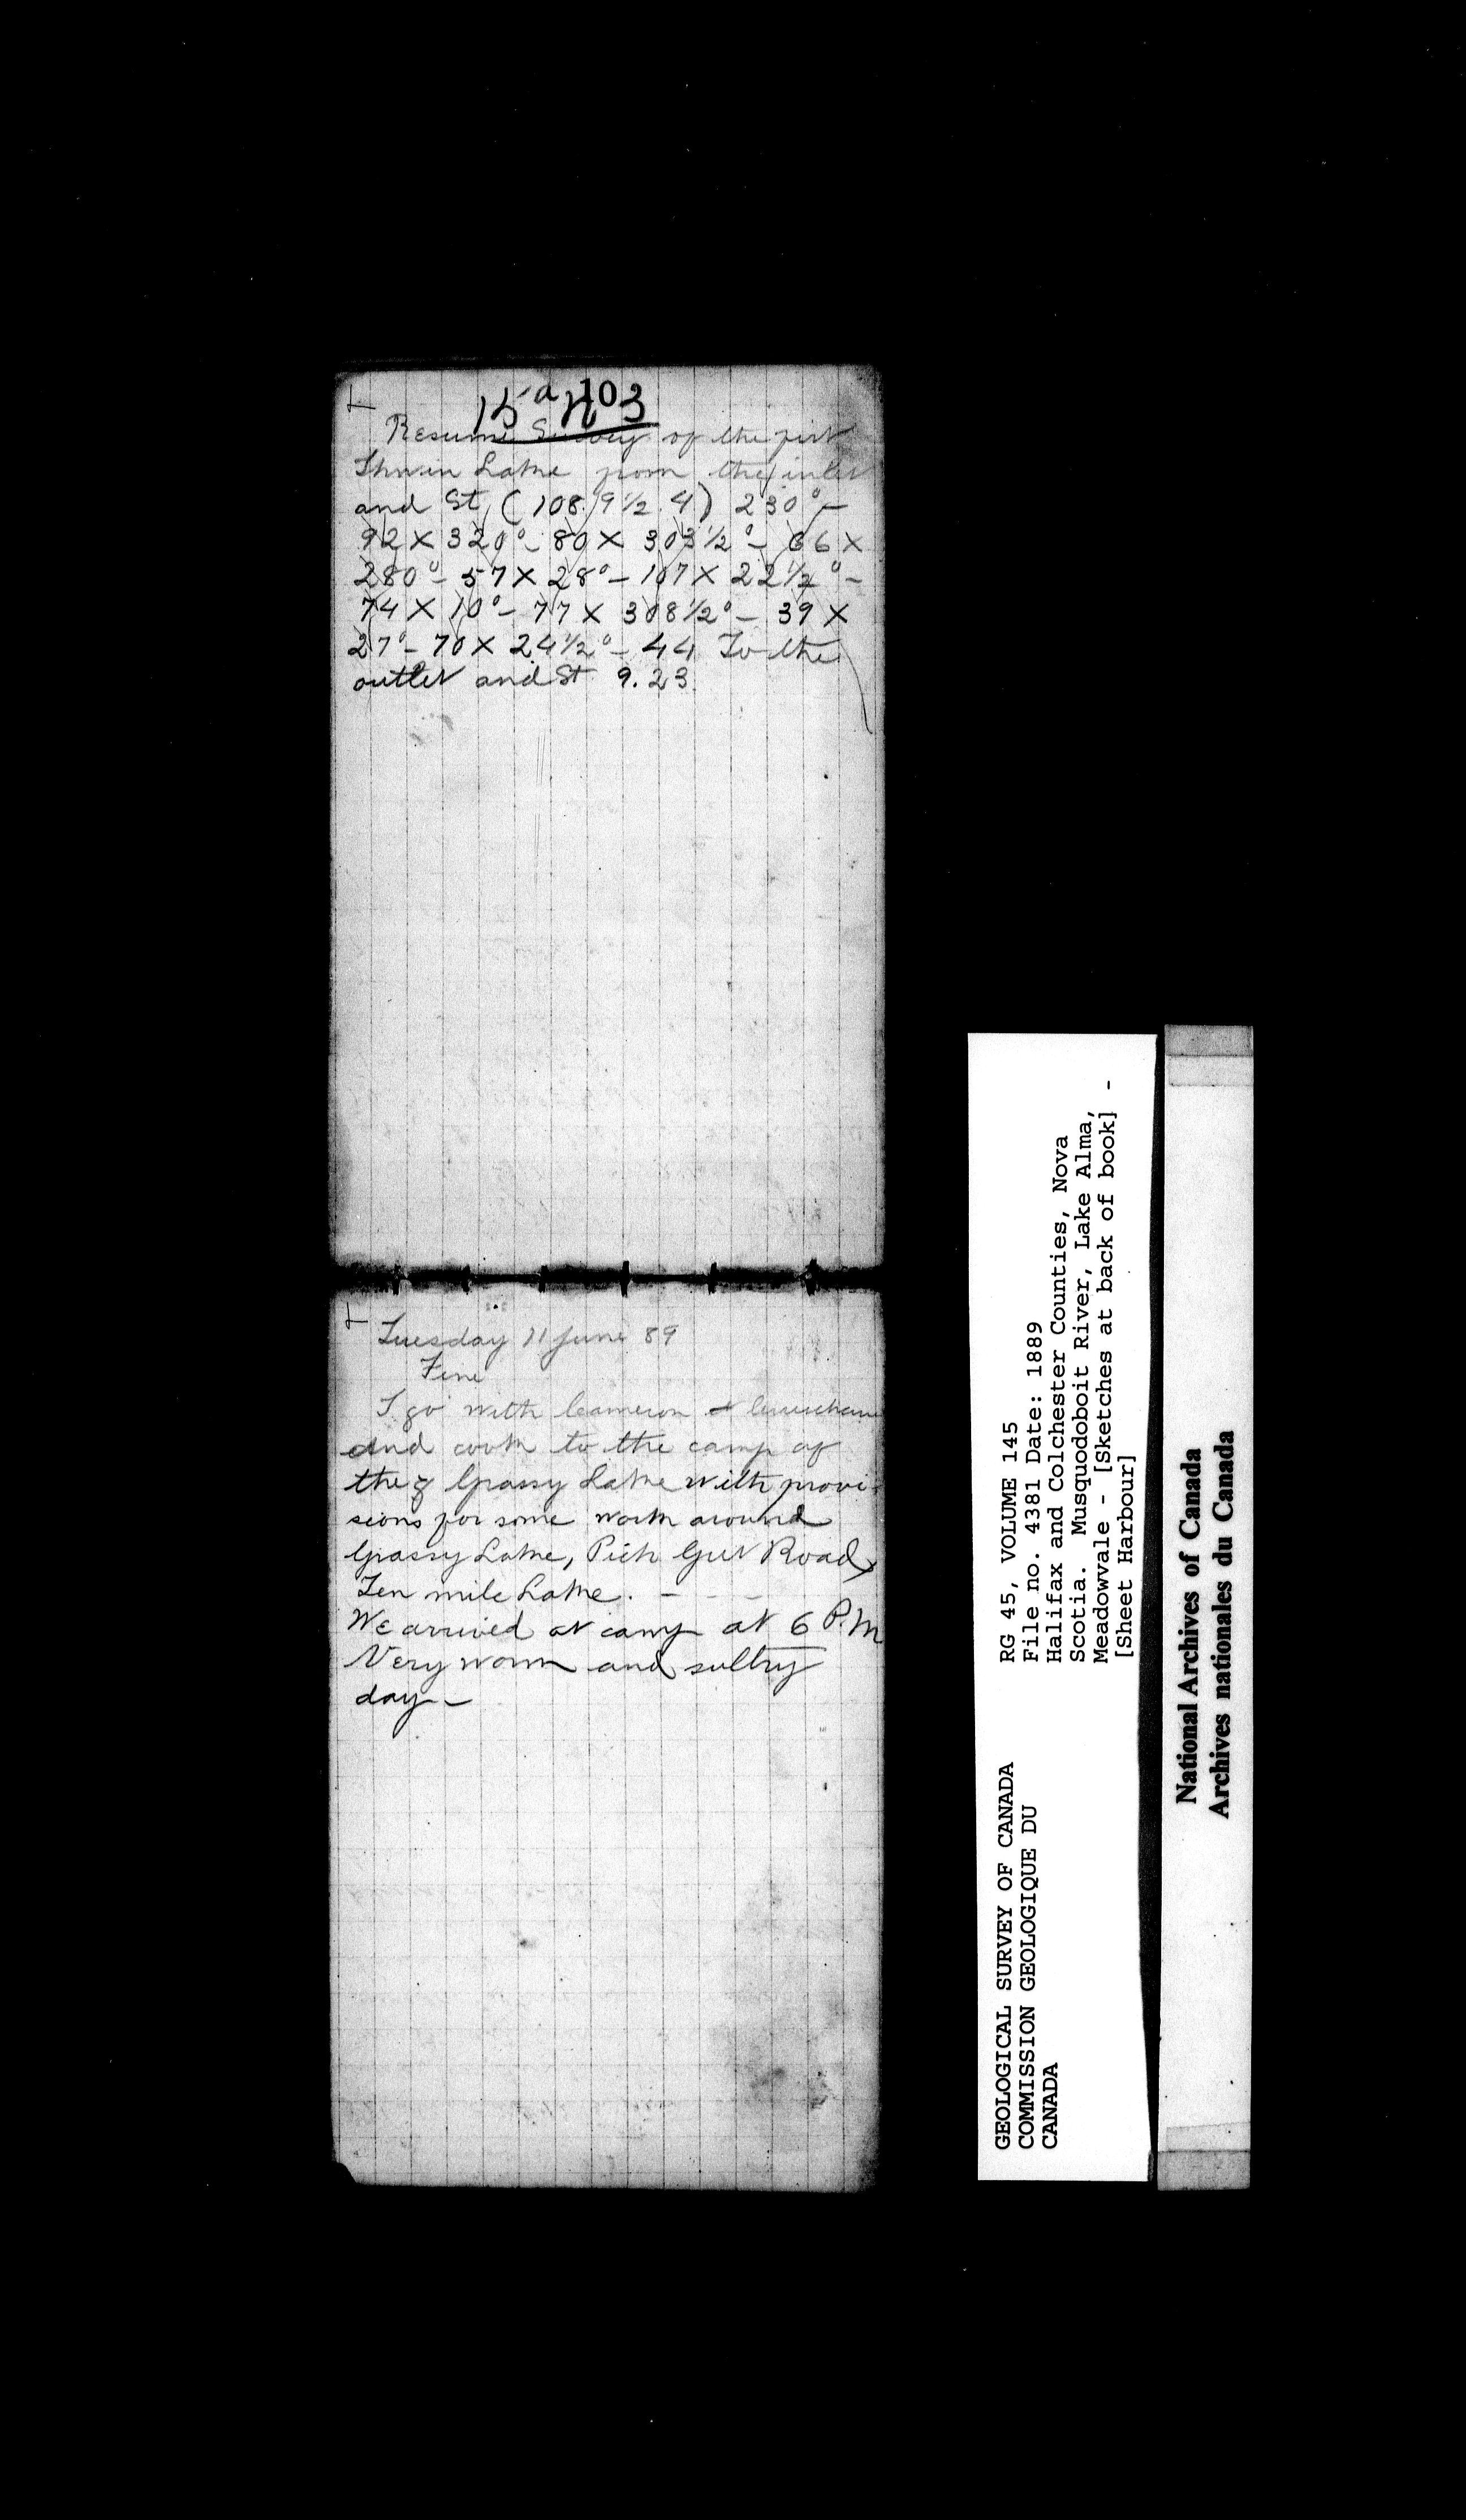 103
15 a N 3
Resume Survey of the first
Thwin Lake from the inlet
and St (108. 9½. 4) 230° –
92 X 320° – 80 X 303½° – 66 X
280° – 57 X 28° – 107 X 22½° –
74 X 10° – 77 X 308½° – 39 X
27° – 70 X 24½° – 44 To the
outlet and St 9.23.
Tuesday 11 June 89
Fine
I go with Cameron &
and cook to the camp of
the Grassy Lake with provi-
sions for some work around
Grassy Lake, Pich Gut Road,
Ten mile Lake. –
We arrived at camp at 6 P.M
Very warm and sultry
day –
GEOLOGICAL SURVEY OF CANADA
COMMISSION GEOLOGIQUE DU
CANADA
RG 45, VOLUME 145
File no. 4381 Date: 1889
Halifax and Colchester Counties, Nova
Scotia. Musquodoboit River, Lake Alma,
Meadowvale - [Sketches at back of book] -
[Sheet Harbour]
National Archives of Canada
Archives nationales du Canada